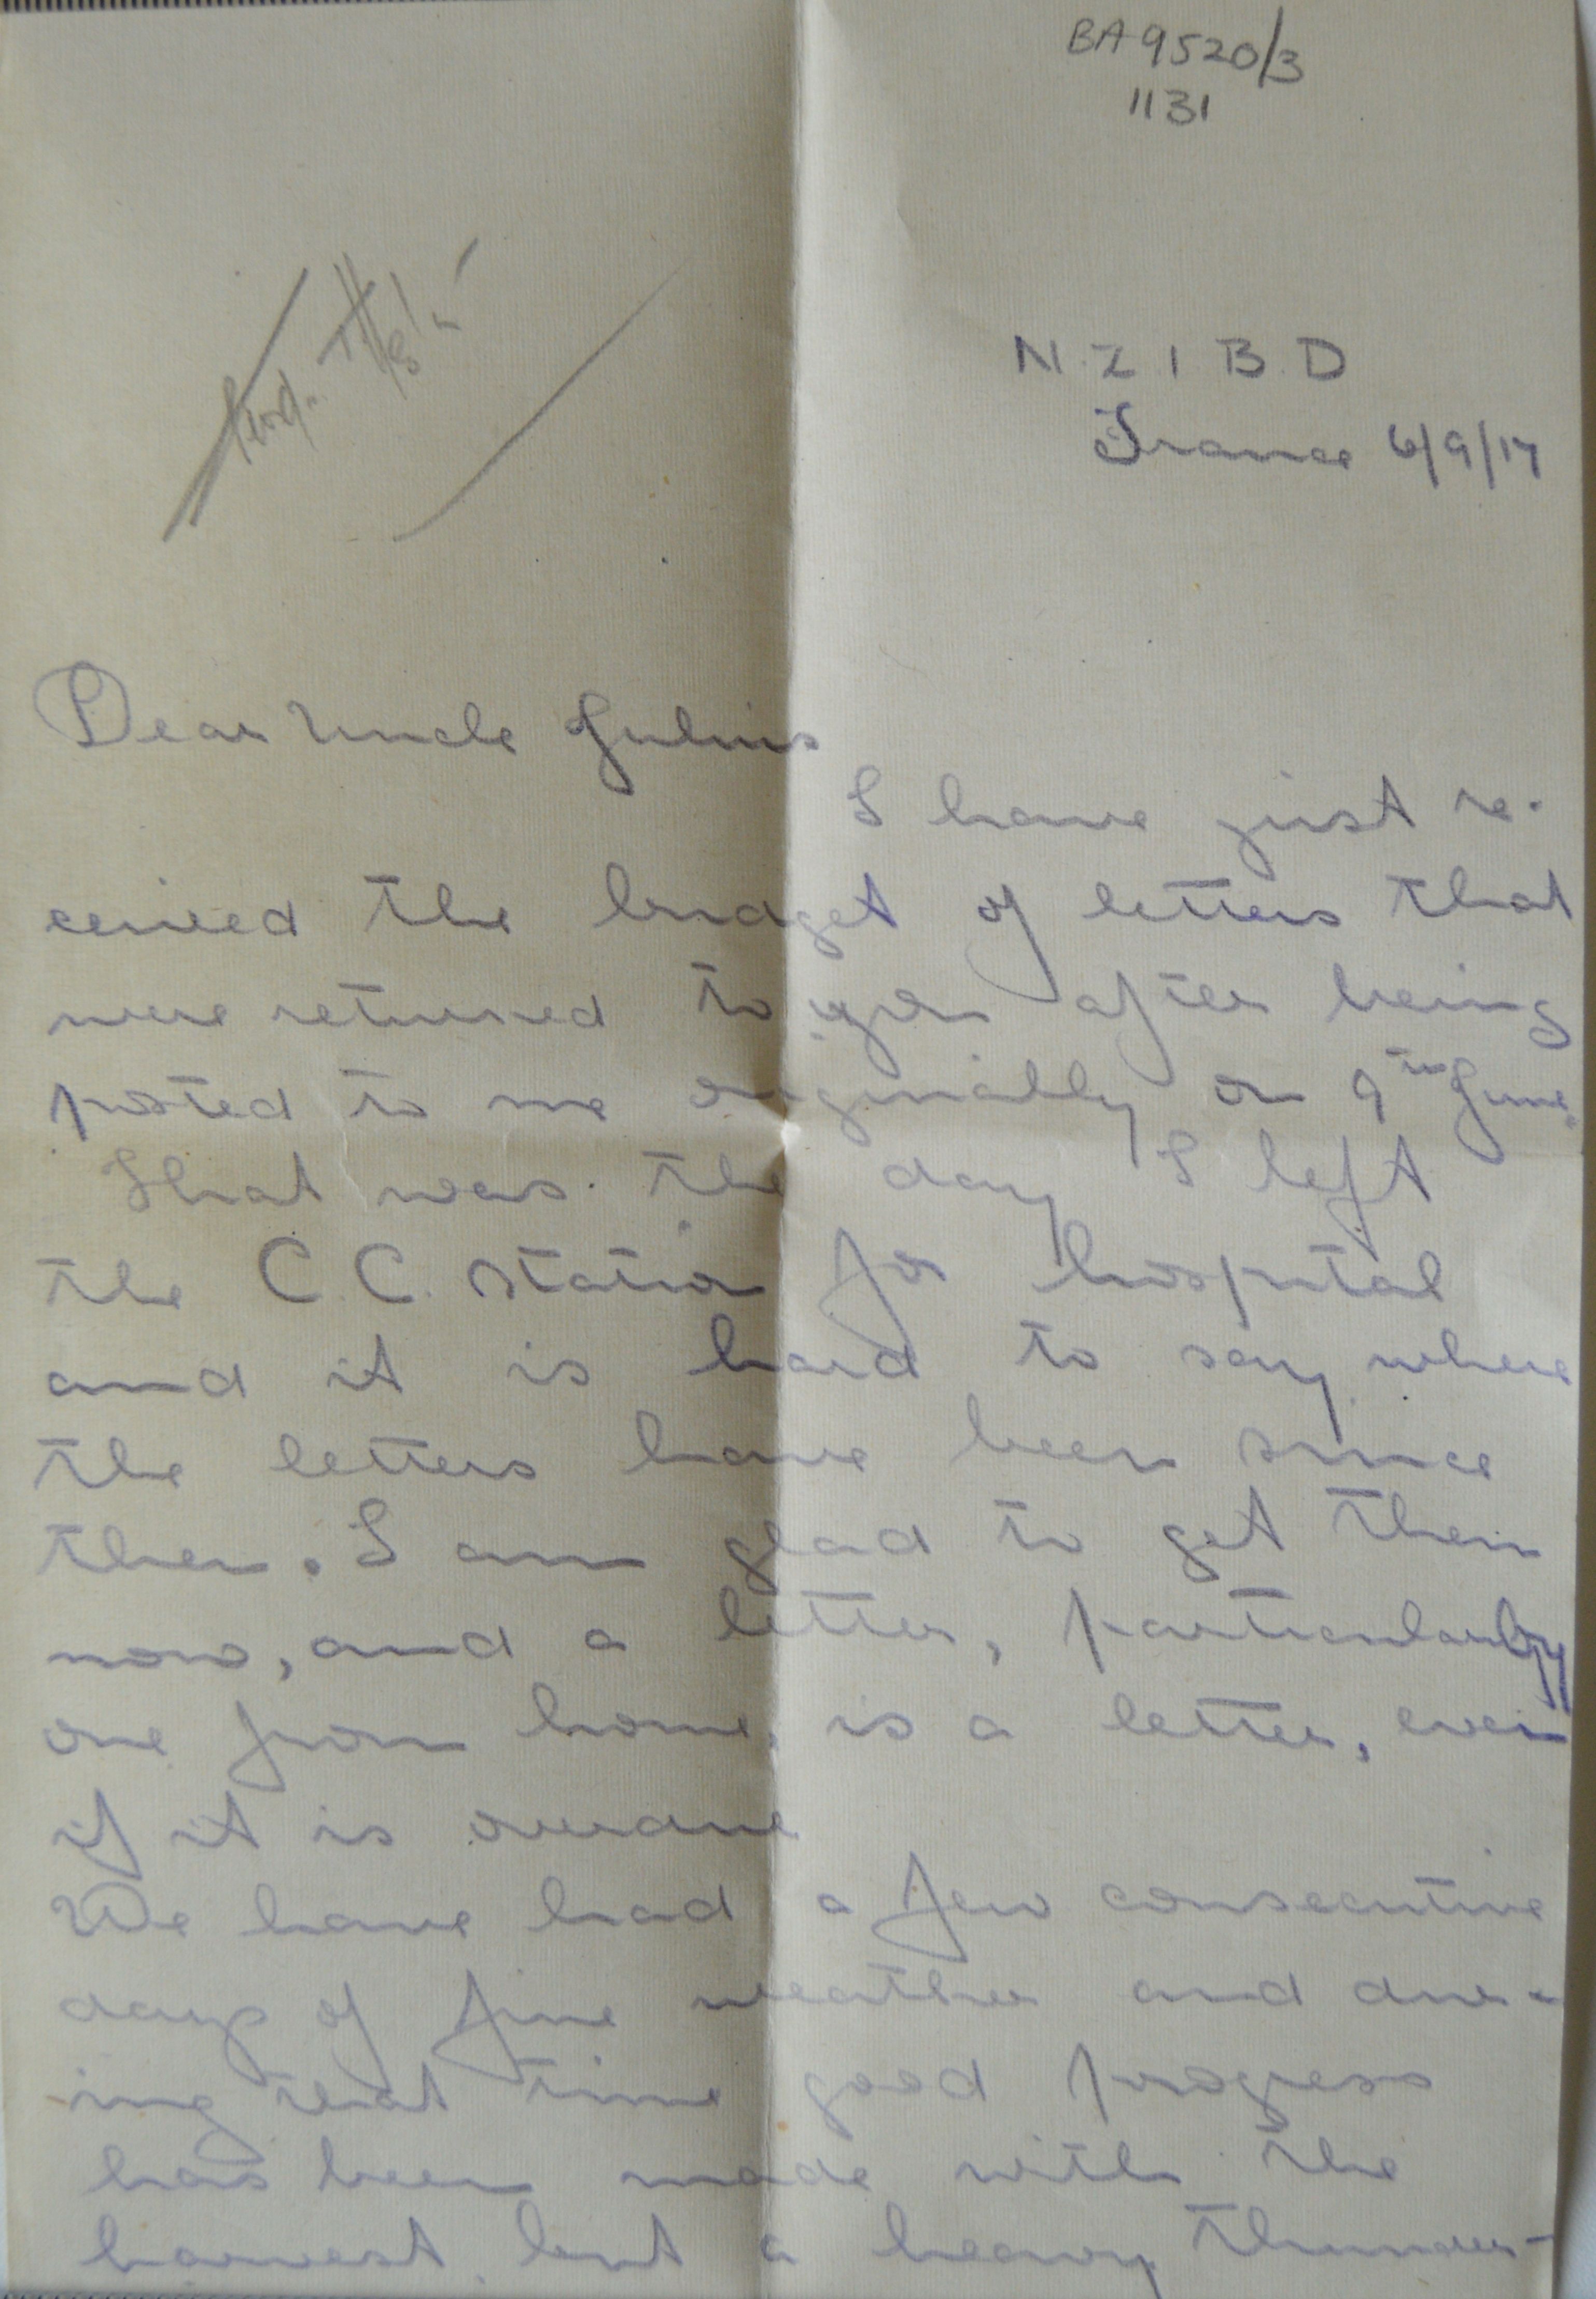 BA9520/3
1131
N.Z.I.B.D
France 6/9/17
Dear Uncle Julius
I have just re-
ceived the budget of letters that
were returned to you after being
posted to me originally on 9th June.
That was the day I left
the C.C. Station for hospital
and it is hard to say where
the letters have been since
then. I am glad to get them
now, and a letter, particularly
one from home, is a letter, even
if it is overdue
We have had a few consecutive
days of fine weather and dur-
ing that time good progress
has been made with the
harvest, but a heavy thunder-